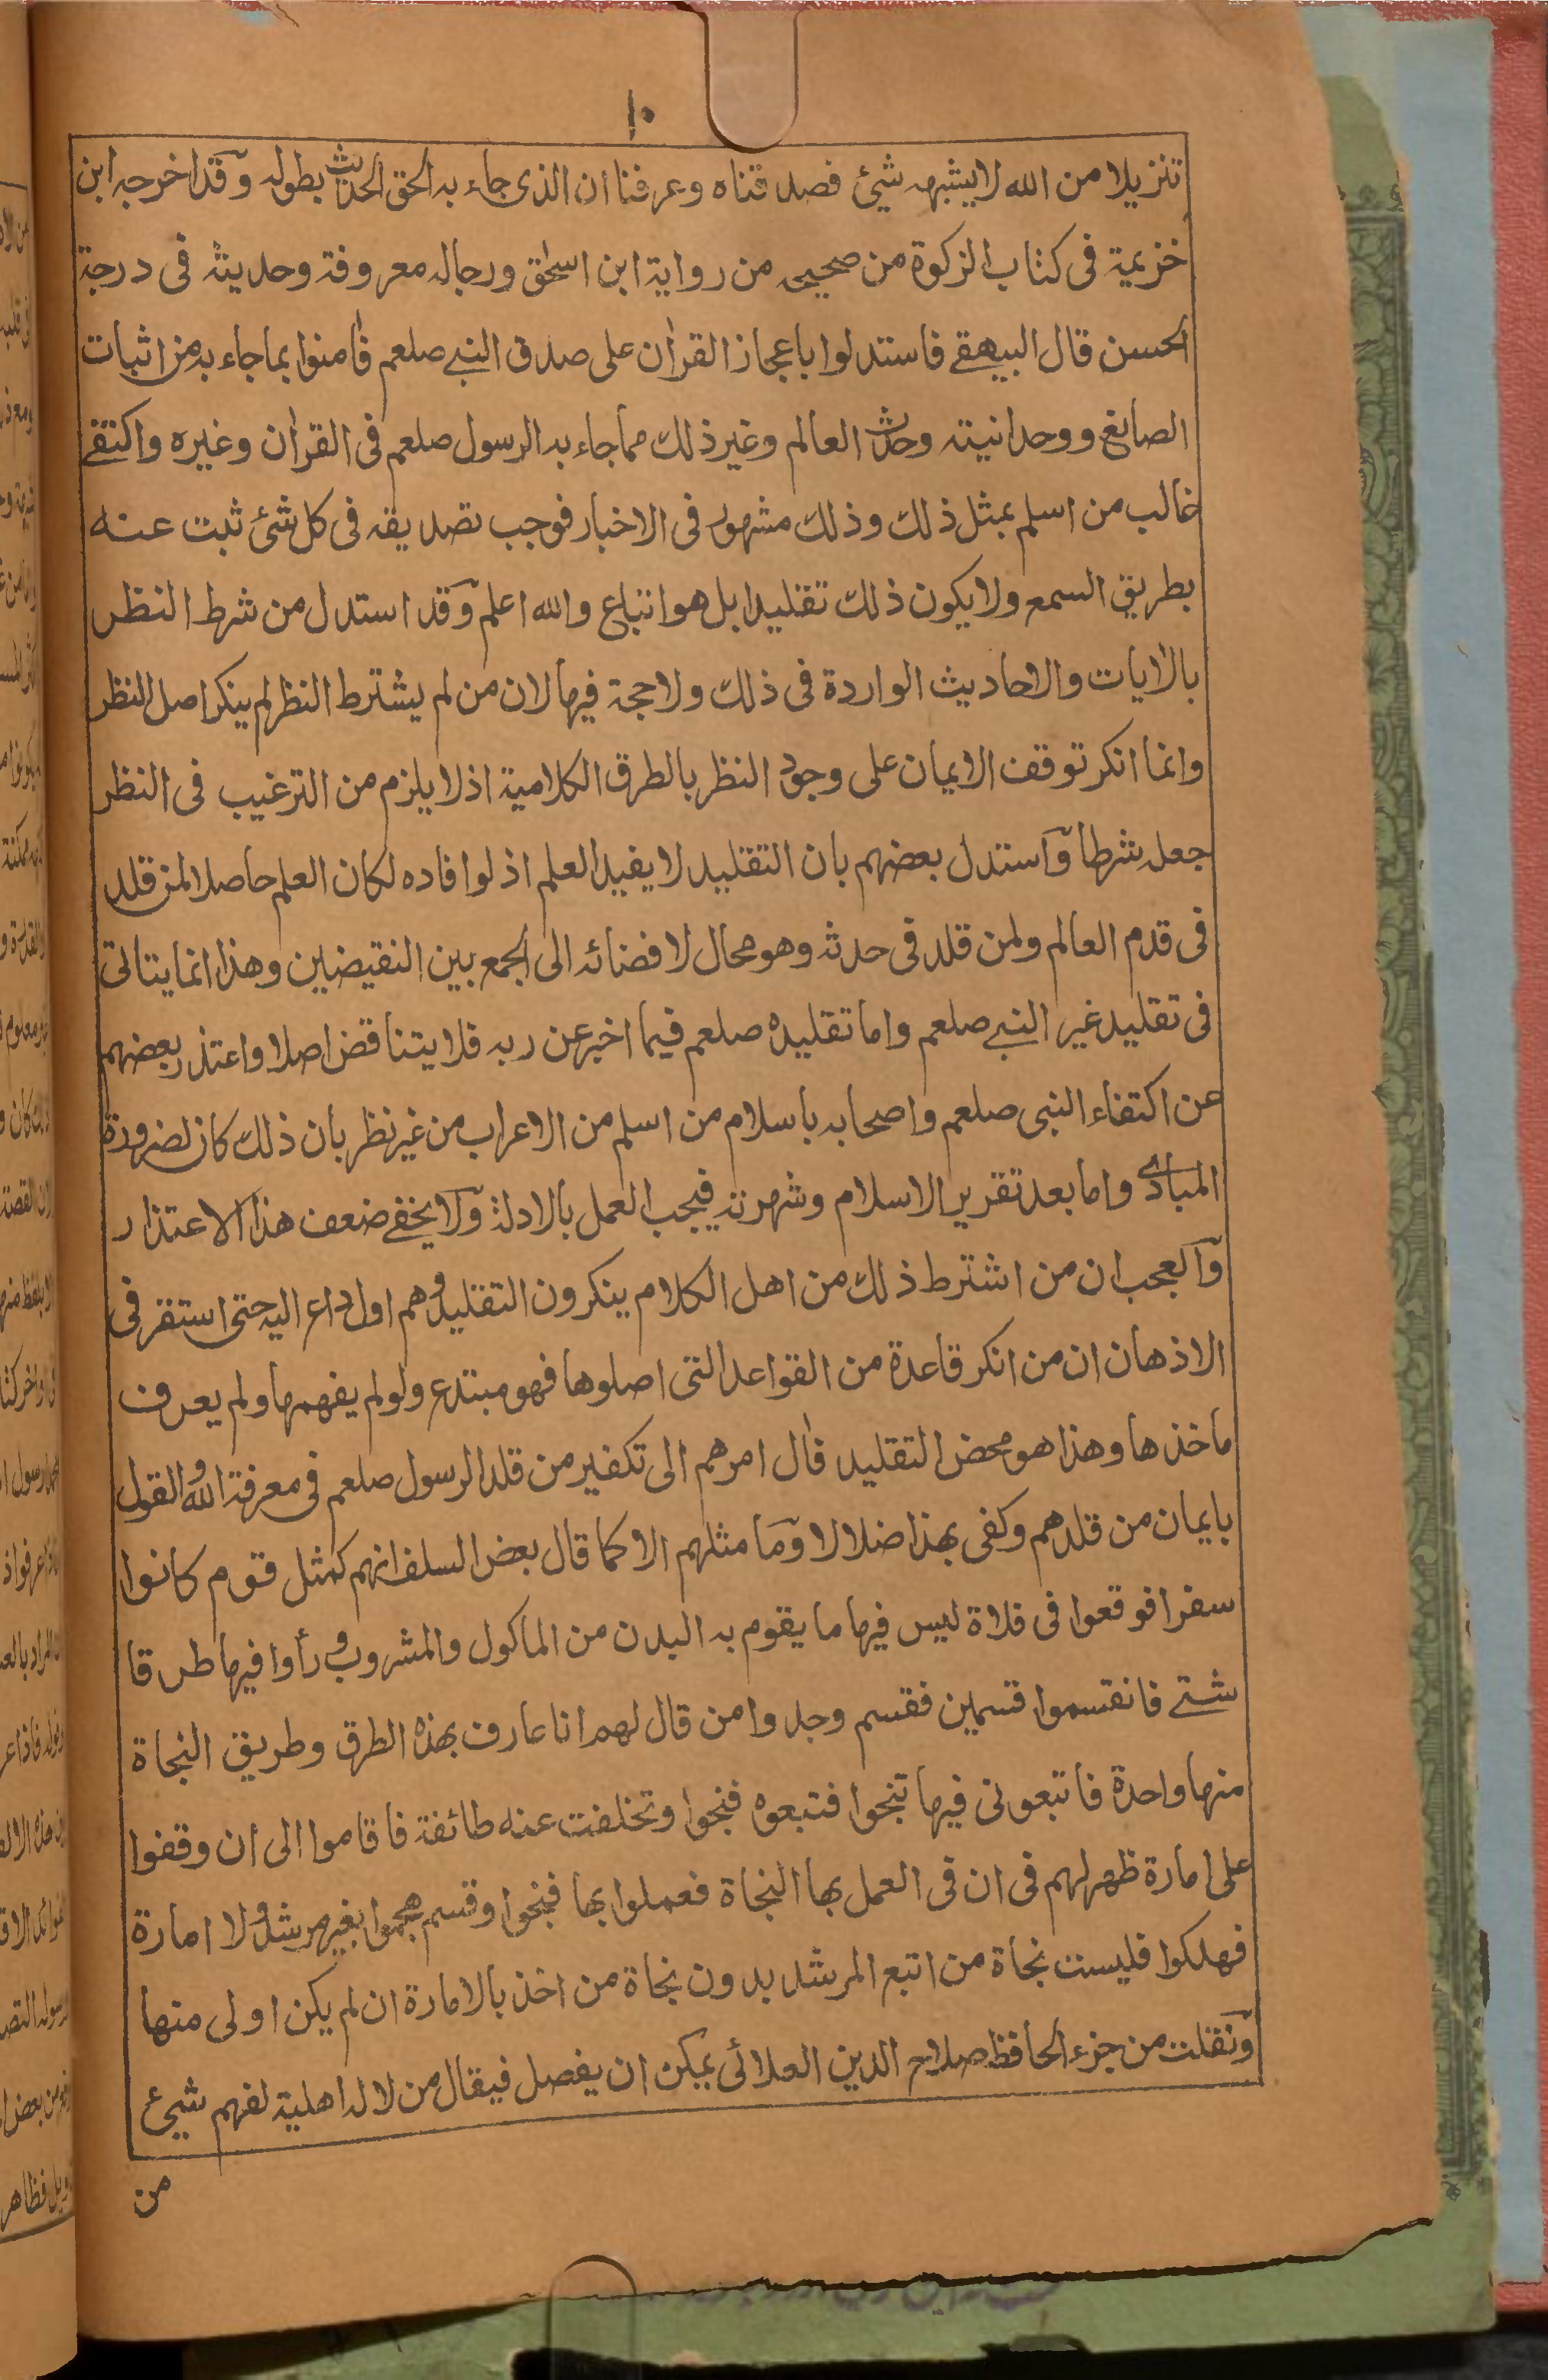 ١٠
تنزيلا من الله لا يشبهه شيئ فصدقناه وعرفنا ان الذى جاء به الحق الحديث بطوله وقد اخرجه ابن
خزيمة فى كتاب الزكوة من صحيحه من رواية ابن اسحٰق ورجاله معروفة وحديثه فى درجة
الحسن قال البيهقے فاستدلوا باعجاز القراٰن على صدق النبے صلعم فاٰمنوا بما جاء به من اثبات
الصانع ووحدانيته وحدث العالم وغير ذلك مما جاء به الرسول صلعم فى القراٰن وغيره واكتفے
غالب من اسلم بمثل ذلك وذلك مشهور فى الاخبار فوجب تصديقه فى كل شئ ثبت عنه
بطريق السمع ولا يكون ذلك تقليدا بل هو اتباع والله اعلم وقد استدل من شرط النظر
بالاٰيات والاحاديث الواردة فى ذلك ولا حجة فيها لان من لم يشترط النظر لم ينكر اصل النظر
وانما انكر توقف الايمان على وجود النظر بالطرق الكلامية اذ لا يلزم من الترغيب فى النظر
جعله شرطا واستدل بعضهم بان التقليد لا يفيد العلم اذ لو افاده لكان العلم حاصلا لمن قلد
فى قدم العالم ولمن قلد فى حدثه وهو محال لافضائه الى الجمع بين النقيضين وهذا انما يتاتى
فى تقليد غير النبے صلعم واما تقليده صلعم فيما اخبر عن ربه فلا يتناقض اصلا واعتذر بعضهم
عن اكتفاء النبى صلعم واصحابه باسلام من اسلم من الاعراب من غير نظر بان ذلك كان لضرورة
المبادى واما بعد تقرير الاسلام وشهرته فيجب العمل بالادلة ولا يخفے ضعف هذا الاعتذار
والعجب ان من اشترط ذلك من اهل الكلام ينكرون التقليد وهم اول داع اليه حتى استقر فى
الاذهان ان من انكر قاعدة من القواعد التى اصلوها فهو مبتدع ولو لم يفهمها ولم يعرف
ماخذها وهذا هو محض التقليد فاٰل امرهم الى تكفير من قلد الرسول صلعم فى معرفة الله والقول
بايمان من قلدهم وكفى بهذا ضلالا وما مثلهم الا كما قال بعض السلف انهم كمثل قوم كانوا
سفرا فوقعوا فى فلاة ليس فيها ما يقوم به البدن من الماكول والمشروب ورأوا فيها طرقا
شتے فانقسموا قسمين فقسم وجدوا من قال لهم انا عارف بهذه الطرق وطريق النجاة
منها واحدة فاتبعونى فيها تنجوا فتبعوه فنجوا وتخلفت عنه طائفة فاقاموا الى ان وقفوا
على امارة ظهر لهم فى ان فى العمل بها النجاة فعملوا بها فنجوا وقسم هجموا بغير مرشد ولا امارة
فهلكوا فليست نجاة من اتبع المرشد بدون نجاة من اخذ بالامارة ان لم يكن اولى منها
ونقلت من جزء الحافظ صلاح الدين العلائى يمكن ان يفصل فيقال من لا له اهلية لفهم شيئ
من